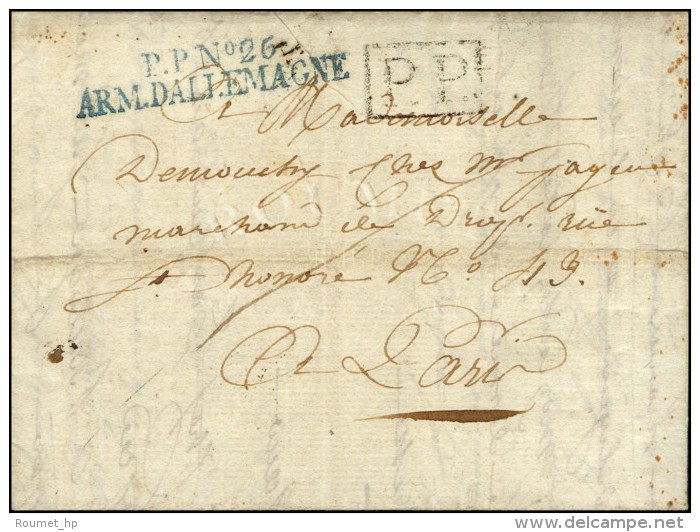 P.P.N° 26
ARM. DALLEMAGNE
P.P.
A Mademoiselle
Demouchy chez mr
marchand de Drap. rüe
st honoré N° 43.
A Paris
Roumet_hp
delcampe.net